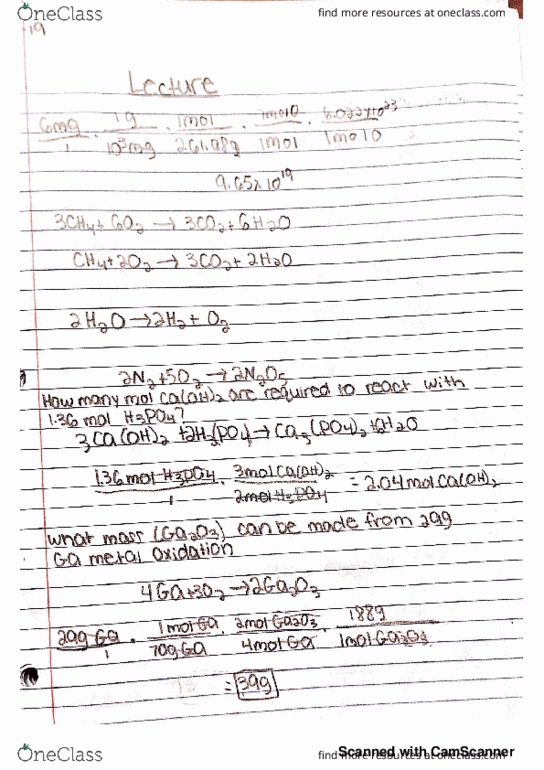 OneClass
find more resources at oneclass.com
19
Lecture
6mg/1 · 1g/10³mg · 1mol/261.98g · 7mol O/1mol · 6.022x10²³/1mol O
9.65x10¹⁹
3CH₄ + 6O₂ → 3CO₂ + 6H₂O
CH₄ + 2O₂ → 3CO₂ + 2H₂O
2H₂O → 2H₂ + O₂
2N₂ + 5O₂ → 2N₂O₅
How many mol Ca(OH)₂ are required to react with
1.36 mol H₃PO₄?
3Ca(OH)₂ + 2H₃(PO₄) → Ca₃(PO₄)₂ + 6H₂O
1.36 mol H₃PO₄/1 · 3mol Ca(OH)₂/2mol H₃PO₄ = 2.04 mol Ca(OH)₂
what mass (Ga₂O₃) can be made from 29g
Ga metal oxidation
4Ga + 3O₂ → 2Ga₂O₃
29g Ga/1 · 1mol Ga/70g Ga · 2mol Ga₂O₃/4mol Ga · 188g/1mol Ga₂O₃
= 39g
OneClass
find more resources at oneclass.com
Scanned with CamScanner